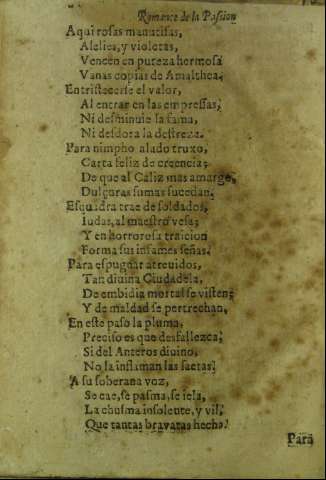 Romance de la Passion
Aqui rosas manutisas,
Alelies, y violetas,
Vencen en pureza hermosa
Vanas copias de Amalthea.
Entristecerse el valor,
Al entrar en las empressas,
Ni desminuie la fama,
Ni desdora la destreza.
Para nimpho alado truxo,
Carta feliz de creencia;
De que al Caliz mas amargo,
Dulçuras sumas sucedan,
Esquadra trae de soldados,
Iudas, al maestro vesa;
Y en horrorosa traicion
Forma sus infames señas.
Para espugnar atreuidos,
Tan diuina Ciudadela,
De embidia mortal se visten;
Y de maldad se pertrechan,
En este paso la pluma,
Preciso es que desfallezca;
Si del Anteros diuino,
No la inflaman las saetas.
A su soberana voz,
Se cae, se pasma, se iela,
La chusma insolente, y vil,
Que tantas bravatas hecha.
Para